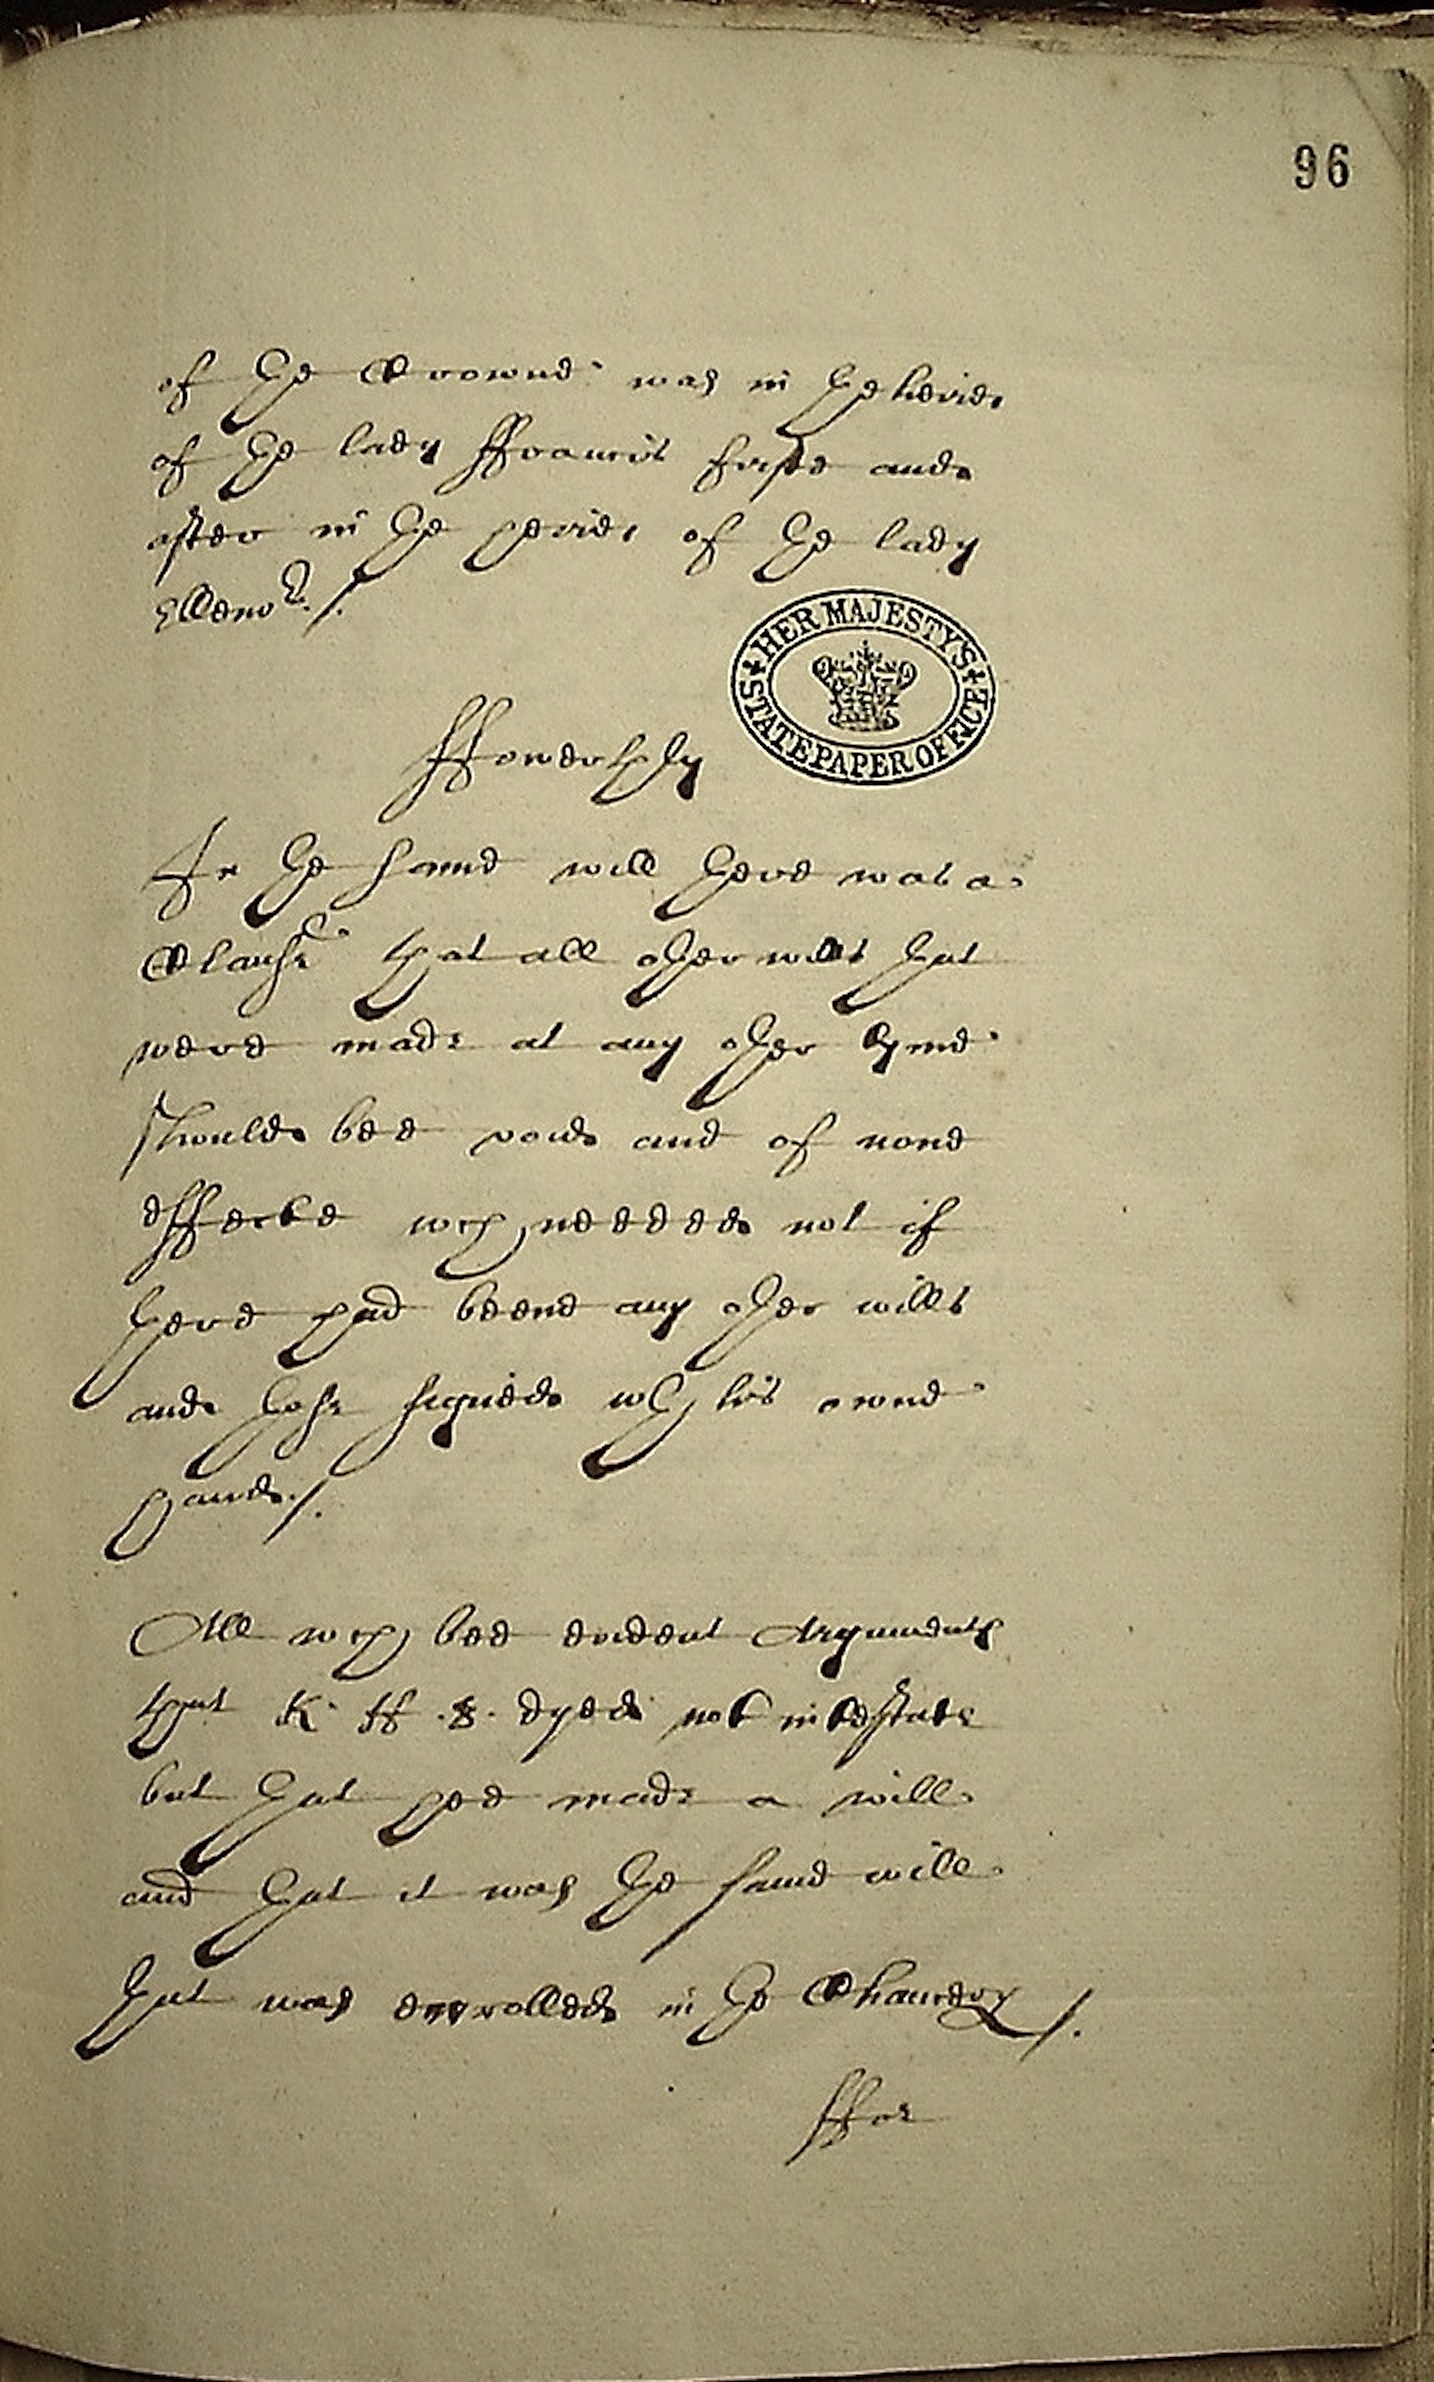 96
of the Crowne was in the heires
of the lady ffrancis firste and
after in the heires of the lady
Ellenor ./.
HER MAJESTY'S
STATE PAPER OFFICE
ffowerthly
In the same will there was a
Clause that all other wills that
were made at any other tyme
should bee voide and of none
effecte wch needed not if
there had beene any other wills
and those signed wth his owne
hand ./.
All wch bee evident Arguments
that K. H. 8. dyed not intestate
but that hee made a will
and that it was the same will
that was enrolled in the Chancery ./.
ffor